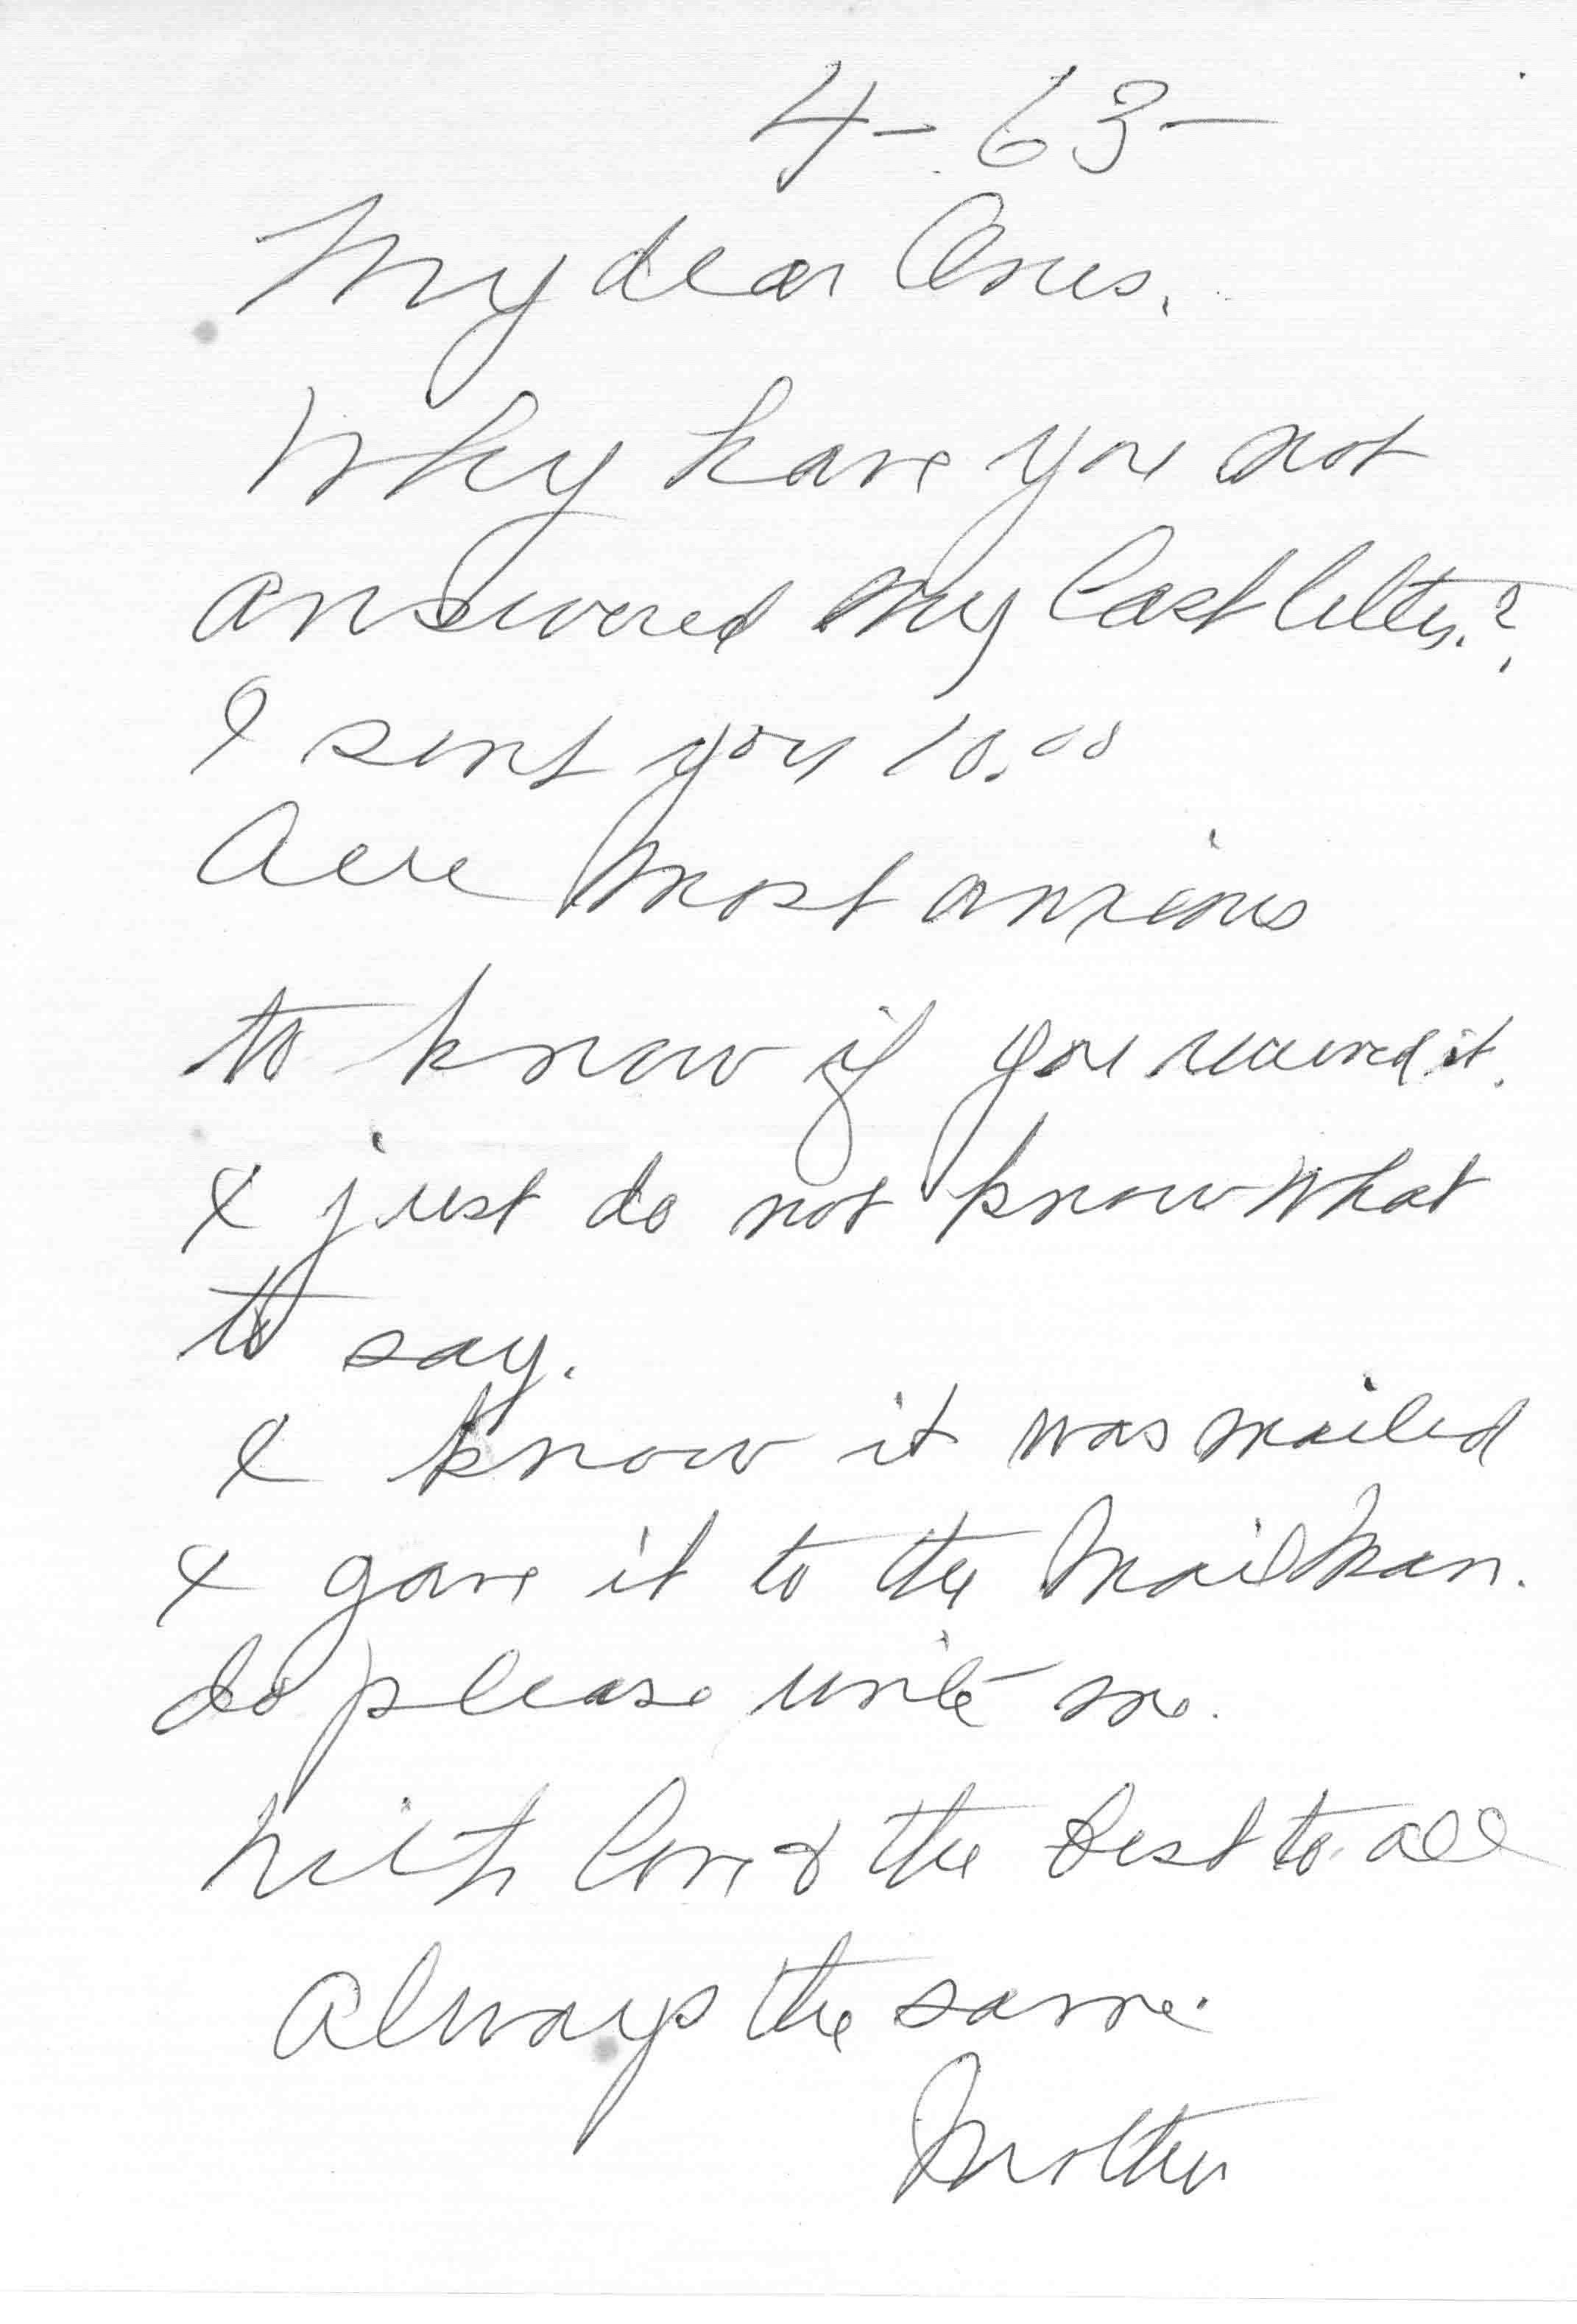 4-63-
My dear Ones.
Why have you not
answered my last letter.?
I sent you 10.00
Are most anxious
to know if you received it.
I just do not know what
to say.
I know it was mailed
I gave it to the Mailman.
do please write me.
With love & the best to all
Always the same.
Mother